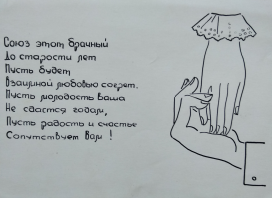 Союз этот брачный
До старости лет
Пусть будет
Взаимной любовью согрет.
Пусть молодость Ваша
Не сдастся годам,
Пусть радость и счастье
Сопутствует Вам!